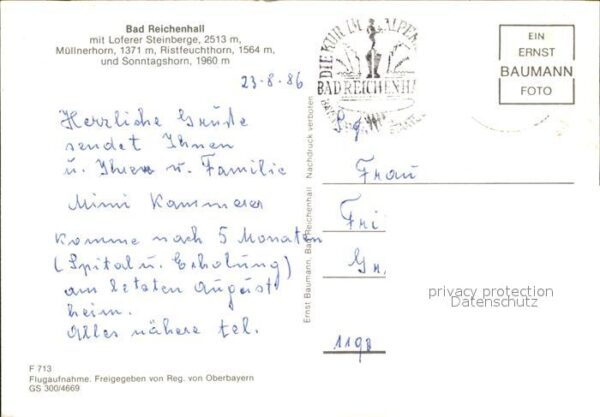 Bad Reichenhall
mit Loferer Steinberge, 2513 m,
Müllnerhorn, 1371 m, Ristfeuchthorn, 1564 m,
und Sonntagshorn, 1960 m
23.8.86
Herzliche Grüße
sendet Ihnen
u. Ihrer w. Familie
Mimi Kammerer
Komme nach 5 Monaten
(Spital u. Erholung)
am letzten August
heim.
Alles nähere tel.
F 713
Flugaufnahme. Freigegeben von Reg. von Oberbayern
GS 300/4669
Ernst Baumann, Bad Reichenhall Nachdruck verboten
DIE KUR IM ALPEN
BAD REICHENHA
EIN
ERNST
BAUMANN
FOTO
Frau
Fri
Gr.
1190
privacy protection
Datenschutz